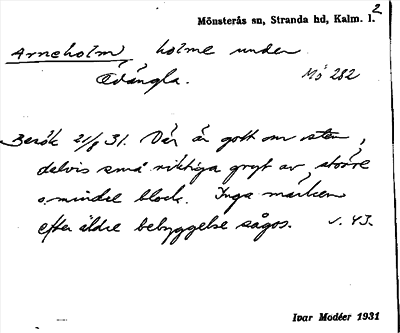 Mönsterås sn, Stranda hd, Kalm. l. 2
Arneholm, holme under
Kvängla. Mö 282
Besök 21/8 31. Där är gott om sten,
delvis små riktiga gryt av större
o. mindre block. Inga märken
efter äldre bebyggelse sågos. v. 43.
Ivar Modéer 1931